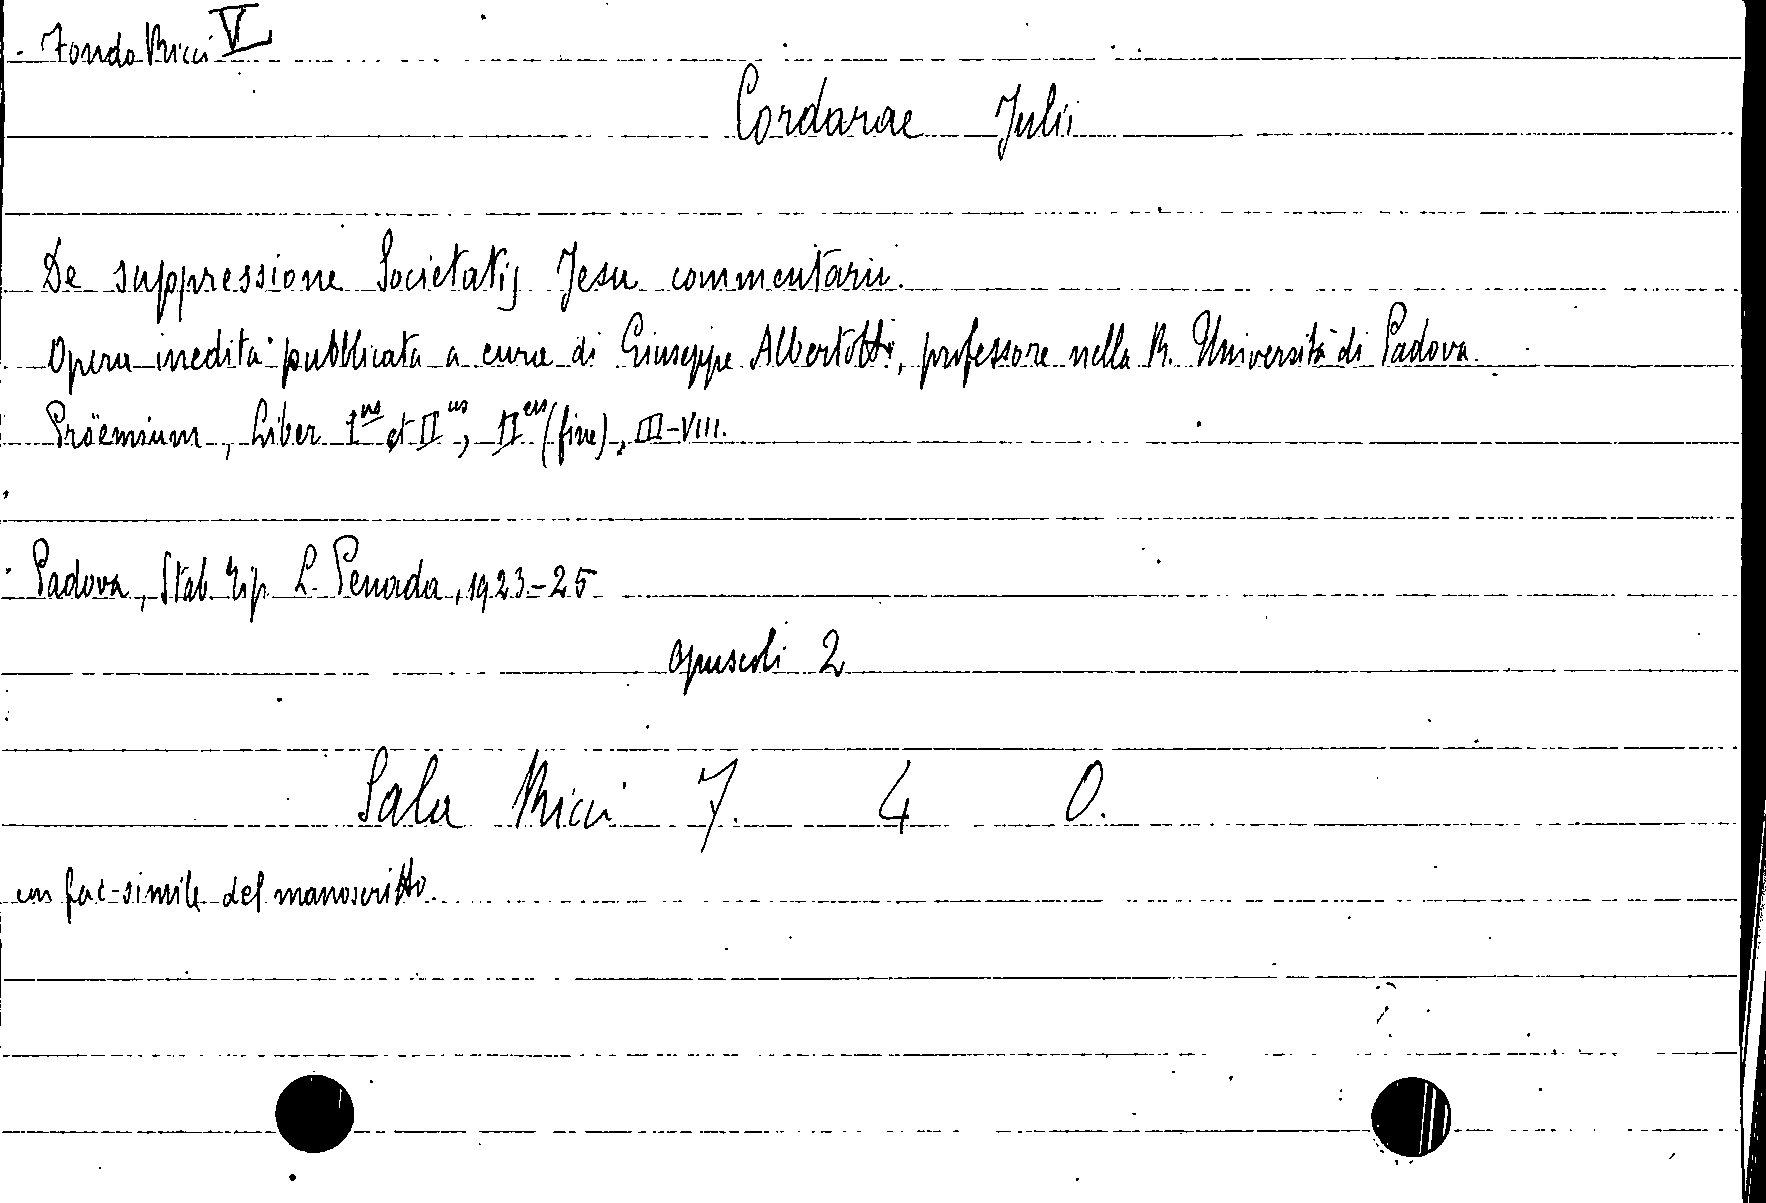 Fondo Ricci V
Cordarae Julii
De suppressione Societatis Jesu commentarii.
Opera inedita pubblicata a cura di Giuseppe Albertotti, professore nella R. Università di Padova.
Proëmium, Liber Ius et IIus, IIus (fine), III-VIII.
Padova, Stab. Tip. L. Penada, 1923-25
opuscoli 2
Sala Ricci 7. 4 O.
un fac-simile del manoscritto.